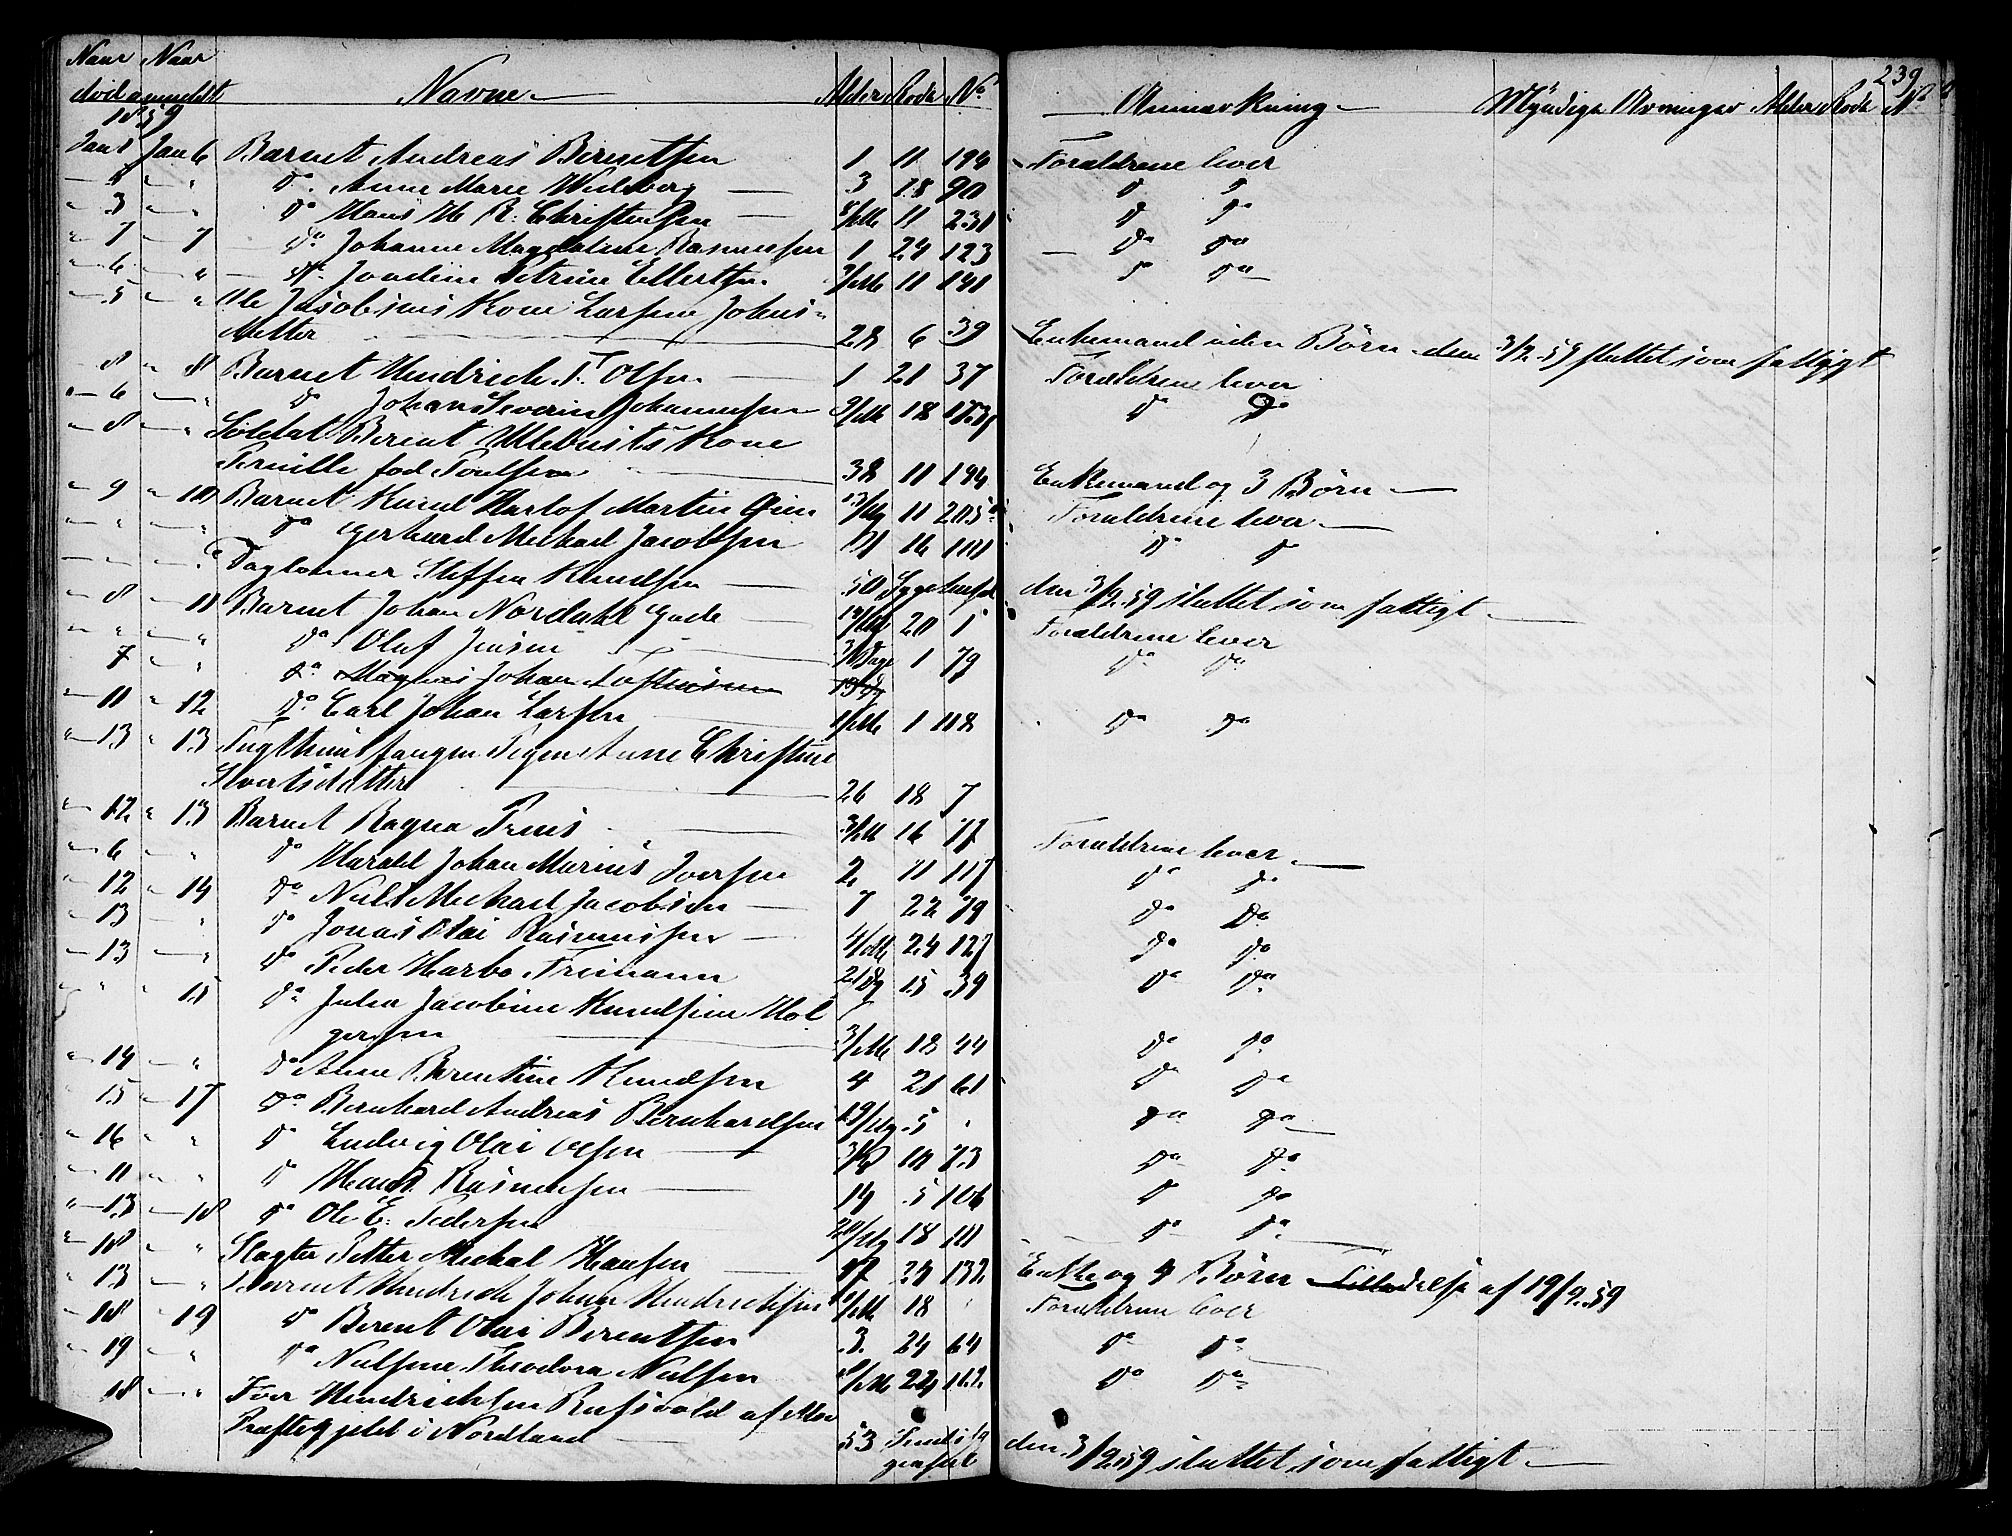 239
Naar Naar
død anmeldt Navne Alder Rode No Anmærkning Myndige Arvinger Alder Rode No
1859
Jan 1 Jan 6 Barnet Andreas Berentsen 1 11 194 Forældrene lever
" " do. Anne Marie Wedberg 3 18 90 do do
3 " do Hans M R. Christensen /Md 11 231 do do
7 7 do Johanne Magdalene Rasmussen 1 24 123 do do
6 " do. Jondine Petrine Ellertsen /Md 11 141 do do
5 " Ole Jacobsens Kone Larsine Johns=
datter 28 6 39 Enkemand uden Børn den 3/2 59 sluttet som fattigt
8 8 Barnet Hendrich T. Olsen 1 21 37 Forældrene lever
6 " do Johan Severin Johannesen 9/Md 18 173 do do
8 " Soldat Berent Kone
Pernille fød Poulsen 38 11 194 Enkemand og 3 Børn
9 10 Barnet Knud Herlof Martin 13/Dg 11 205 Forældrene lever
" " do Gerhard Meckael Jacobsen 14 101 do do
" " Daglønner Steffen Knudsen 50 Sygehuset den 3/2 59 sluttet som fattigt
8 11 Barnet Johan Nordahl Gade 14/Dg 20 1 Forældrene lever
" " do Oluf Jensen 3/Dage 1 79 do do
7 " do Magnus Johan
11 12 do Carl Johan Larsen /Md 1 118 do do
13 13 Tugthuusfangen Pigen Anne Christine
Sivertsdatter 26 18 7
12 13 Barnet Ragna Friis 3/Md 16 77 Forældrene lever
6 " do Harald Johan Marius Iversen 2 11 117 do do
12 14 do Niels Meckael Jacobsen 7 22 79 do do
13 " do Jonas Olai Rasmussen 4/Md 24 127 do do
13 " do Peder Harbo Friemann 21 Dg 15 39 do do
" 15 do Julia Jacobine Knudsine Hol
gersen 3/Md 18 44 do do
14 " do Anne Berentine Knudsen 4 21 61 do do
15 17 do Bernhard Andreas Bernhardsen 19/Dg 5 " do do
16 " do Ludvig Olai Olsen 10 73 do do
11 " do Hans Rasmussen 14 5 106 do do
13 18 do Ole E. Pedersen 20/Dg 18 do do
18 " Slagter Petter Meckal Hansen 47 24 132 Enke og 4 Børn Tilladelse af 19/2 59
13 " Barnet Hendrich Johan Hendrichsen /Md 18 " Forældrene lever
18 19 do Berent Olai Berentsen 3 24 64 do do
19 " do Nielsine Theodora Nielsen /Md 24 do do
18 " Iver Hendrichsen af
Præstegjeld i Nordland 53 den 3/2 59 sluttet som fattigt